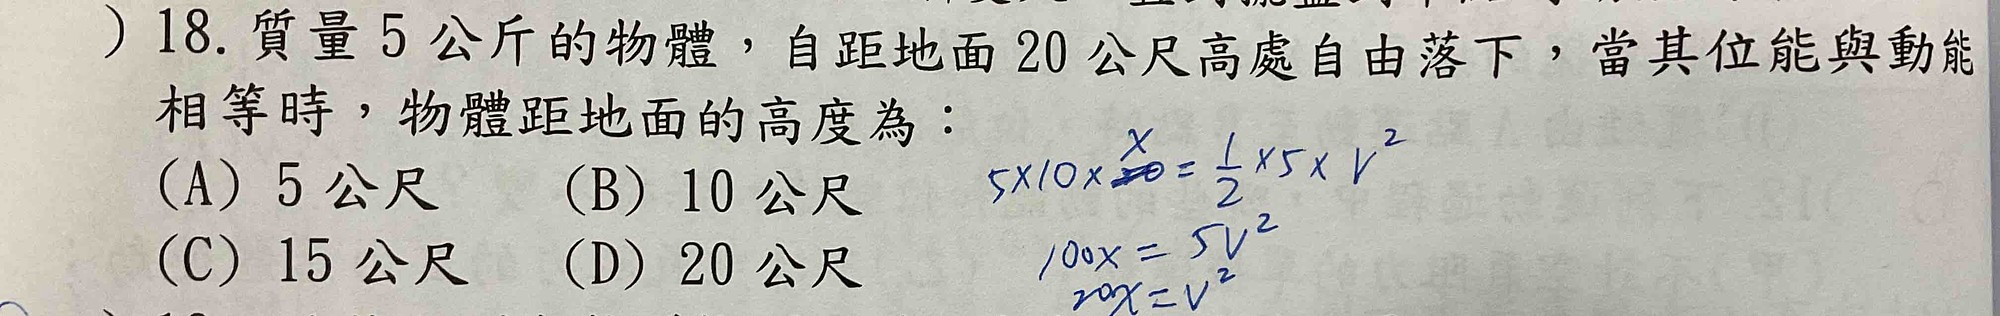 )18. 質量 5 公斤的物體，自距地面 20 公尺高處自由落下，當其位能與動能
相等時，物體距地面的高度為：
(A) 5 公尺 (B) 10 公尺
(C) 15 公尺 (D) 20 公尺
5×10×x = 1/2 ×5× V²
100x = 5V²
20x = V²